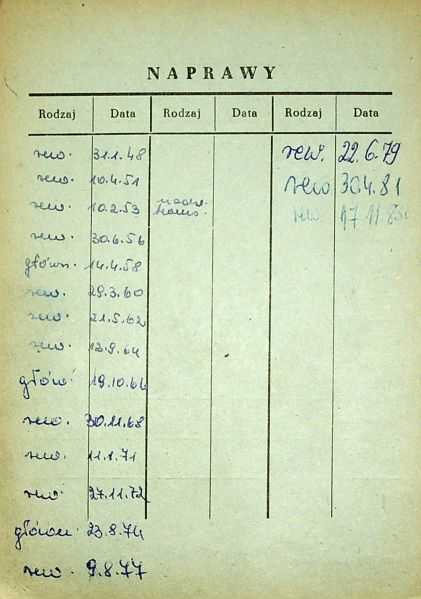 NAPRAWY
Rodzaj Data Rodzaj Data Rodzaj Data
rew. 31.1.48 rew. 22.6.79
rew. 10.4.51 rew 30.4.81
rew. 10.2.53 rew 17.11.83
rew. 30.6.56
główn. 14.4.58
rew. 29.3.60
rew. 21.5.62
rew. 12.9.64
głów. 19.10.66
rew. 30.11.68
rew. 11.1.71
rew. 27.11.72
główn. 23.8.74
rew. 9.8.77